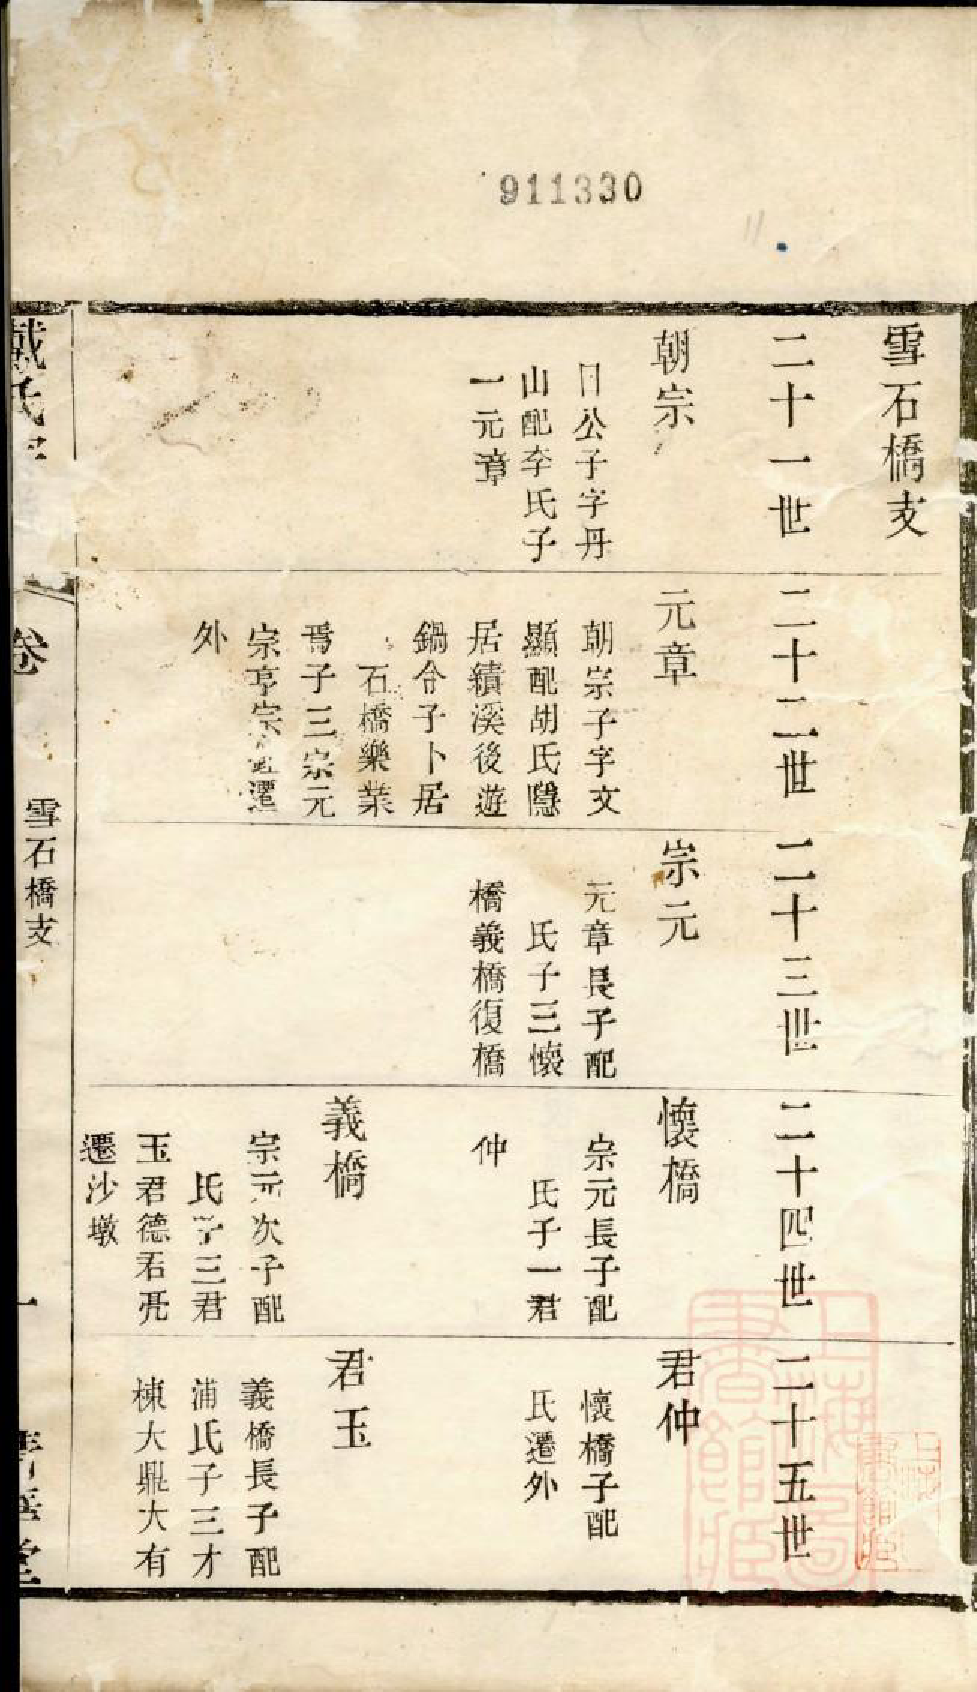 911330
雪石橋支
二十一世
朝宗
日公子字丹
山配李氏子
一元章
二十二世
元章
朝宗子字文
顯配胡氏隱
居績溪後遊
鍋令子卜居
石橋樂業
焉子三宗元
宗亨宗 遷
外
二十三世
宗元
元章長子配
氏子三懷
橋義橋復橋
二十四世
懷橋
宗元長子配
氏子一君
仲
義橋
宗元次子配
氏子三君
玉君德君亮
遷沙墩
二十五世
君仲
懷橋子配
氏遷外
君玉
義橋長子配
浦氏子三才
棟大鼎大有
戴氏
卷
雪石橋支
一
堂
上海圖書館藏
上海圖書館藏